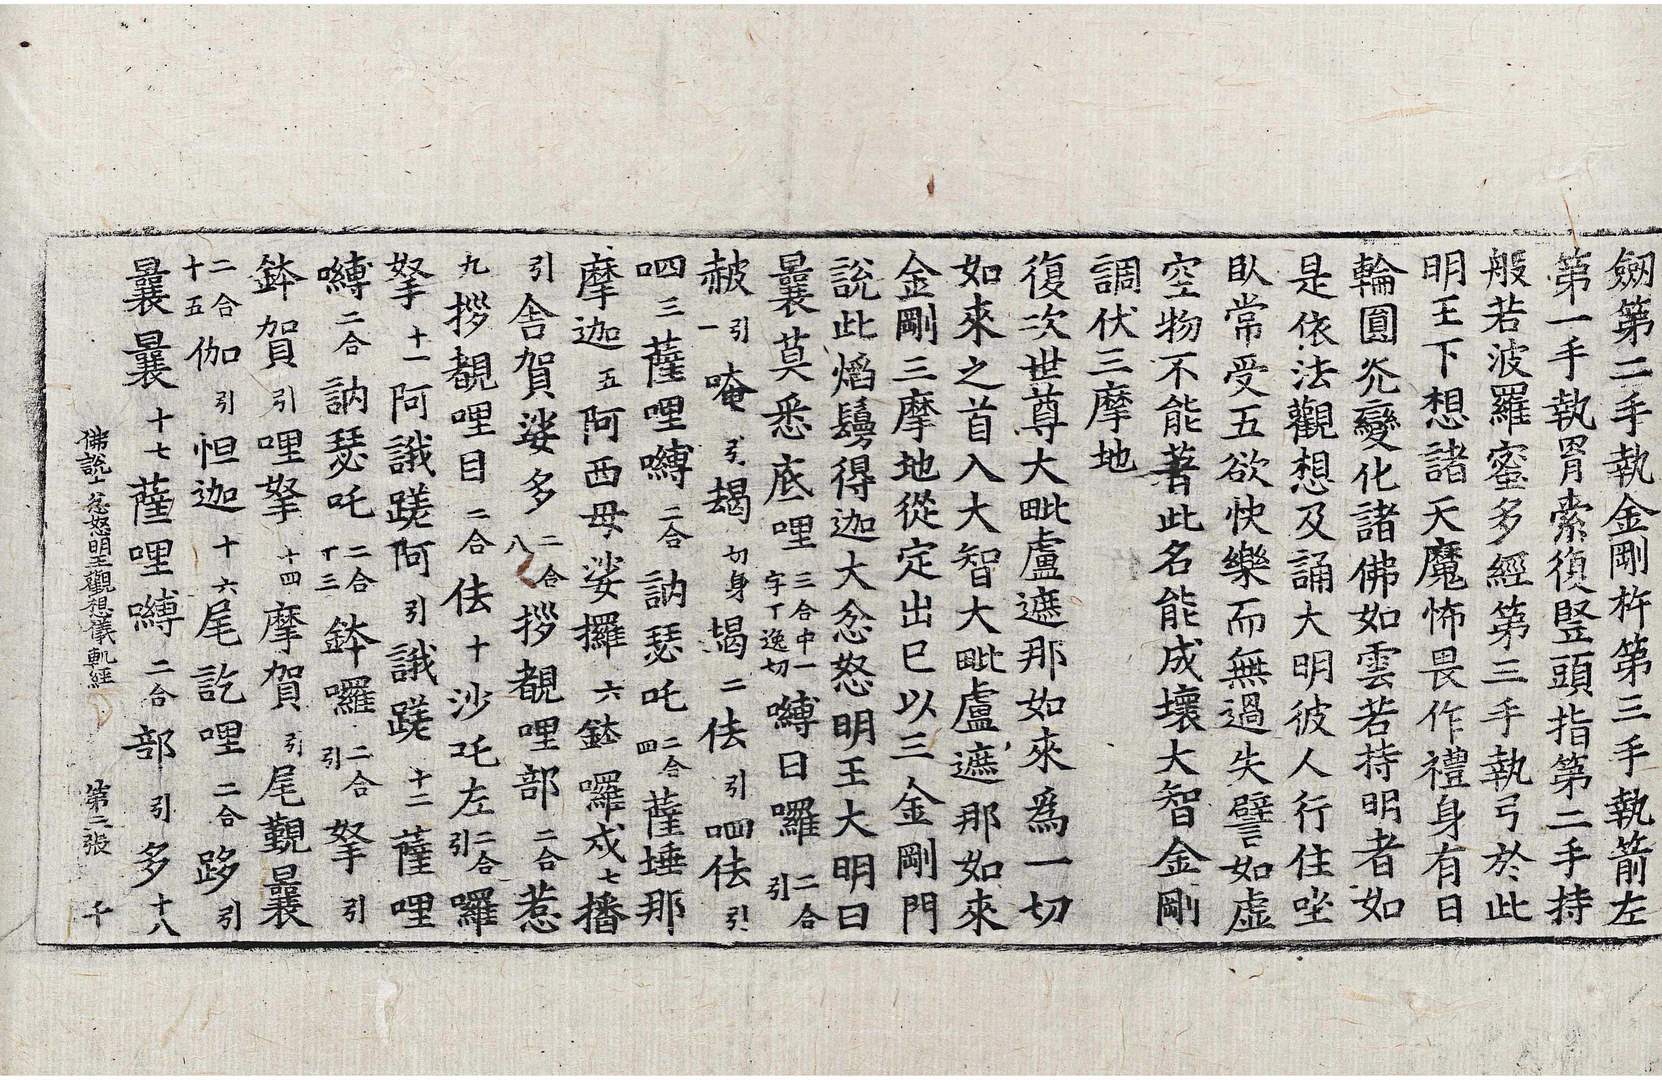 劒第二手執金剛杵第三手執箭左
第一手執罥索復竪頭指第二手持
般若波羅蜜多經第三手執弓於此
明王下想諸天魔怖畏作禮身有日
輪圓光變化諸佛如雲若持明者如
是依法觀想及誦大明彼人行住坐
臥常受五欲快樂而無過失譬如虛
空物不能著此名能成壞大智金剛
調伏三摩地
復次世尊大毗盧遮那如來爲一切
如來之首入大智大毗盧遮那如來
金剛三摩地從定出已以三金剛門
說此熖鬘得迦大忿怒明王大明曰
曩莫悉底哩三合中一字丁逸切嚩日囉二合引
赧引一唵引朅切身朅二佉引呬佉引
呬三薩哩嚩二合訥瑟吒二合四薩埵那
摩迦五阿西母娑攞六鉢囉戍七播
引舍賀娑多二合八拶覩哩部二合惹
九拶覩哩目二合佉十沙吒左二合引囉
拏十一阿誐蹉阿引誐蹉十二薩哩
嚩二合訥瑟吒二合十三鉢囉二合引拏引
鉢賀引哩拏十四摩賀引尾覲曩
二合十五伽引怛迦十六尾訖哩二合跢引
曩曩十七薩哩嚩二合部引多十八
佛說大忿怒明王觀想儀軌經 第二張 千